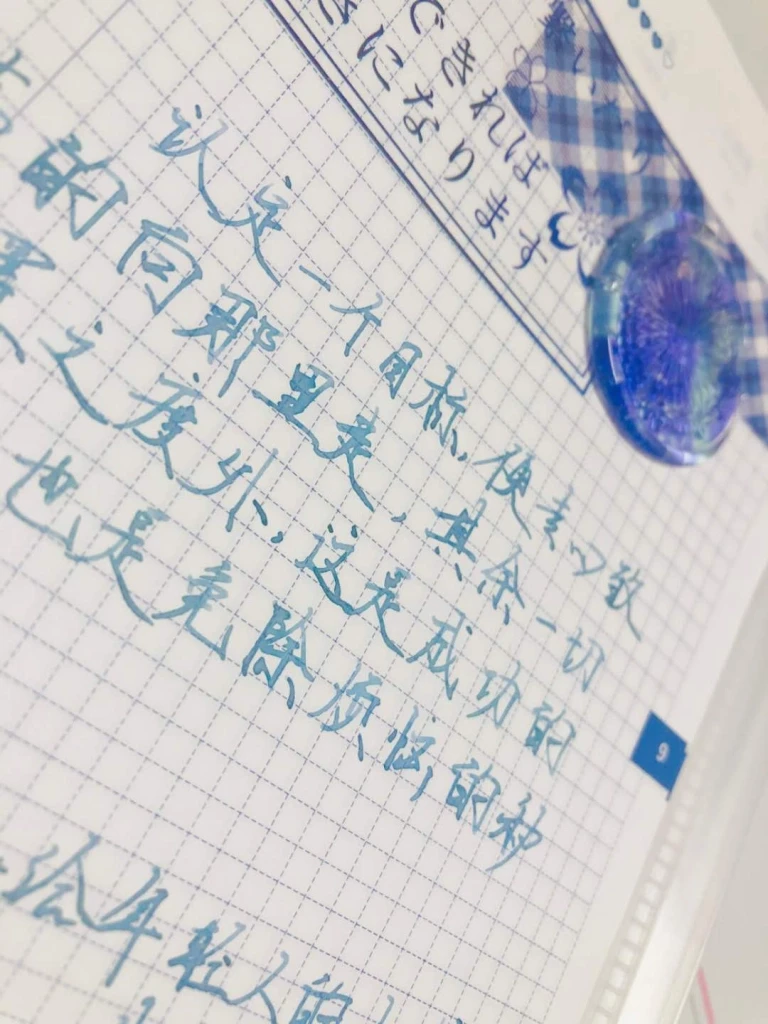 できれば
になります
认定一个目标，便专心致
的向那里走，其余一切
之度外，这是成功的
也是克除烦恼的秘
给年轻人的
9